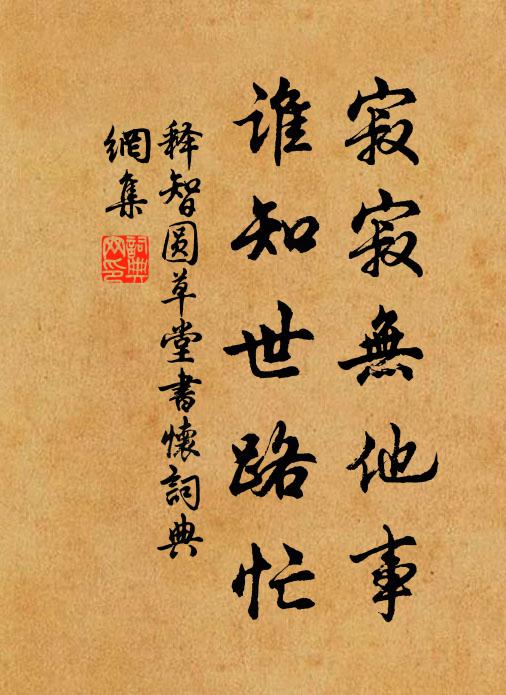 寂寂無他事
谁知世路忙
释智圆草堂書懷詞典
網集
詞典
网印